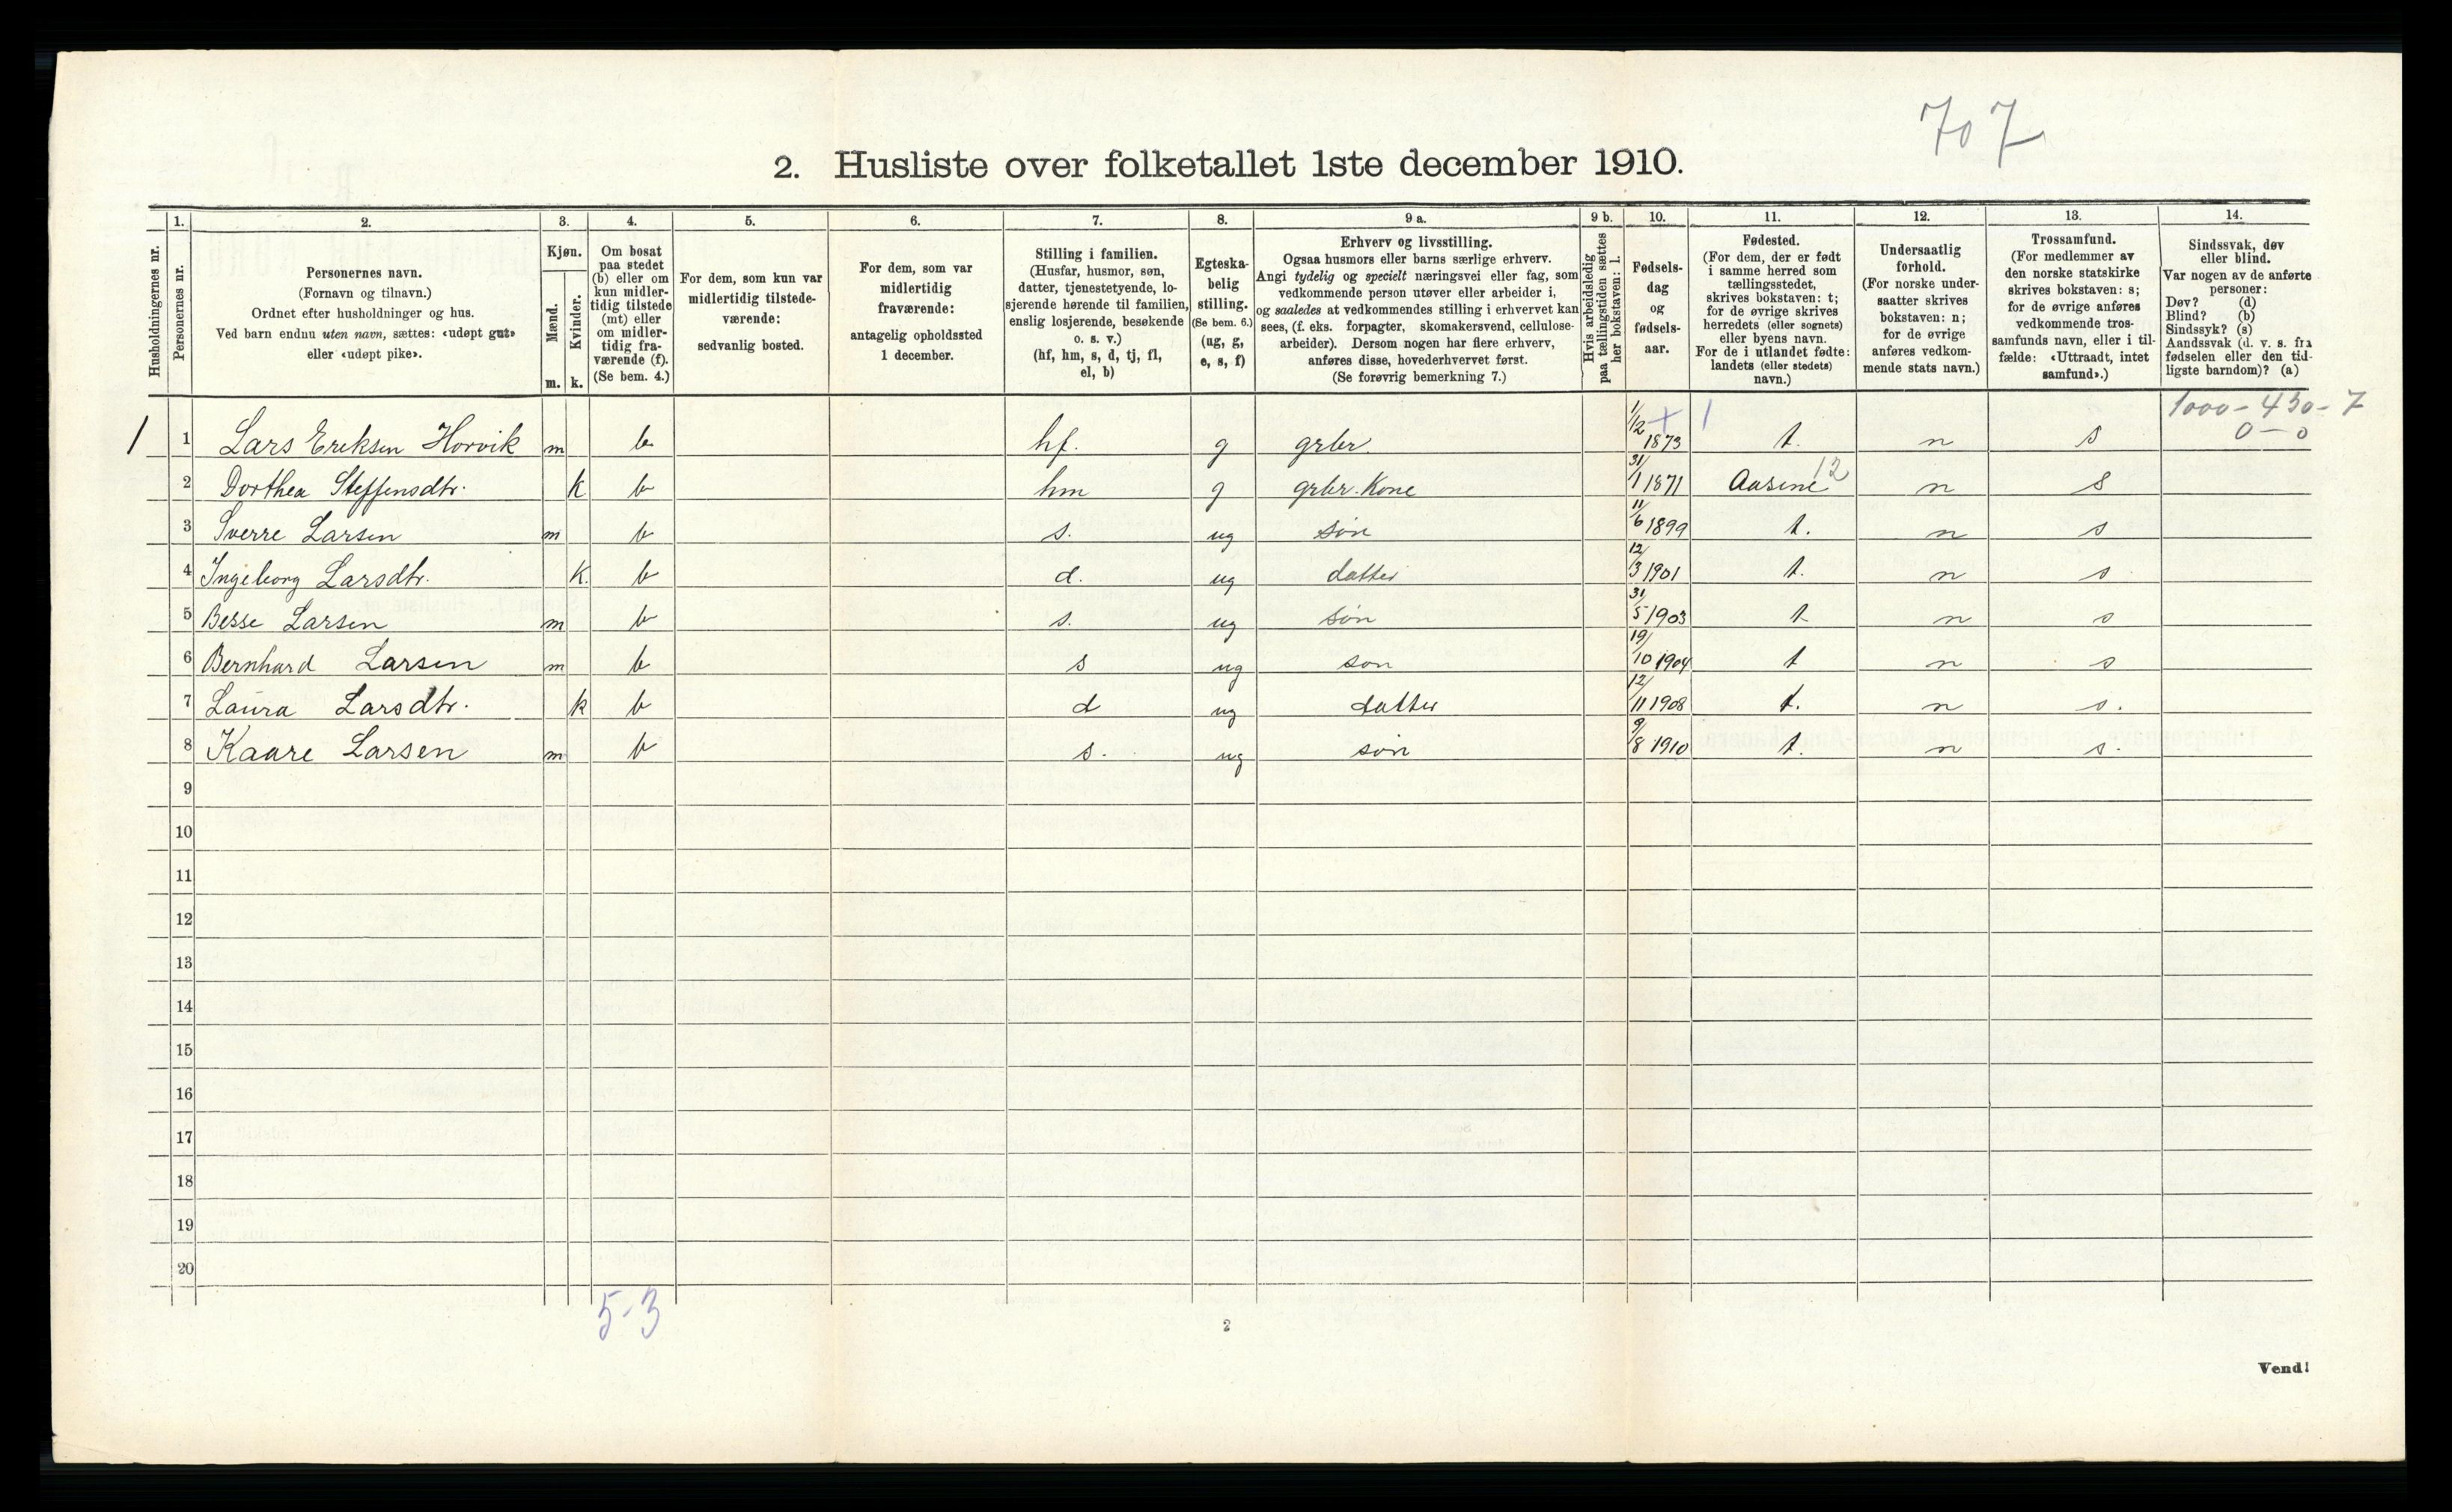 707
2. Husliste over folketallet 1ste december 1910.
Husholdningernes nr.
1.
Personernes nr.
2.
Personernes navn.
(Fornavn og tilnavn.)
Ordnet efter husholdninger og hus.
Ved barn endnu uten navn, sættes: «udøpt gut»
eller «udøpt pike».
3.
Kjøn.
Mænd.
Kvinder.
m. k.
4.
Om bosat
paa stedet
(b) eller om
kun midler-
tidig tilstede
(mt) eller
om midler-
tidig fra-
værende (f).
(Se bem. 4.)
5.
For dem, som kun var
midlertidig tilstede-
værende:
sedvanlig bosted.
6.
For dem, som var
midlertidig
fraværende:
antagelig opholdssted
1 december.
7.
Stilling i familien.
(Husfar, husmor, søn,
datter, tjenestetyende, lo-
sjerende hørende til familien,
enslig losjerende, besøkende
o. s. v.)
(hf, hm, s, d, tj, fl,
el, b)
8.
Egteska-
belig
stilling.
(Se bem. 6.)
(ug, g,
e, s, f)
9 a.
Erhverv og livsstilling.
Ogsaa husmors eller barns særlige erhverv.
Angi tydelig og specielt næringsvei eller fag, som
vedkommende person utøver eller arbeider i,
og saaledes at vedkommendes stilling i erhvervet kan
sees, (f. eks. forpagter, skomakersvend, cellulose-
arbeider). Dersom nogen har flere erhverv,
anføres disse, hovederhvervet først.
(Se forøvrig bemerkning 7.)
9 b.
Hvis arbeidsledig
paa tællingstiden sættes
her bokstaven: l.
10.
Fødsels-
dag
og
fødsels-
aar.
11.
Fødested.
(For dem, der er født
i samme herred som
tællingsstedet,
skrives bokstaven: t;
for de øvrige skrives
herredets (eller sognets)
eller byens navn.
For de i utlandet fødte:
landets (eller stedets)
navn.)
12.
Undersaatlig
forhold.
(For norske under-
saatter skrives
bokstaven: n;
for de øvrige
anføres vedkom-
mende stats navn.)
13.
Trossamfund.
(For medlemmer av
den norske statskirke
skrives bokstaven: s;
for de øvrige anføres
vedkommende tros-
samfunds navn, eller i til-
fælde: «Uttraadt, intet
samfund».)
14.
Sindssvak, døv
eller blind.
Var nogen av de anførte
personer:
Døv? (d)
Blind? (b)
Sindssyk? (s)
Aandssvak (d. v. s. fra
fødselen eller den tid-
ligste barndom)? (a)
1000 - 430 - 7
0 - 0
1 1 Lars Eriksen Horvik m b hf. g grbr. 1/12 1873 + 1 t. n s
2 Dorthea Steffensdtr. k b hm g grbr. Kone 31/1 1871 Aasene 12 n s
3 Sverre Larsen m b s. ug søn 11/6 1899 t. n s
4 Ingeborg Larsdtr. k. b d. ug datter 12/3 1901 t. n s
5 Besse Larsen m b s. ug søn 31/5 1903 t n s
6 Bernhard Larsen m b s ug søn 19/10 1904 t n s
7 Laura Larsdtr. k b d ug datter 12/11 1908 t. n s.
8 Kaare Larsen m b s. ug søn 9/8 1910 t. n s.
9
10
11
12
13
14
15
16
17
18
19
20
5-3
2
Vend!